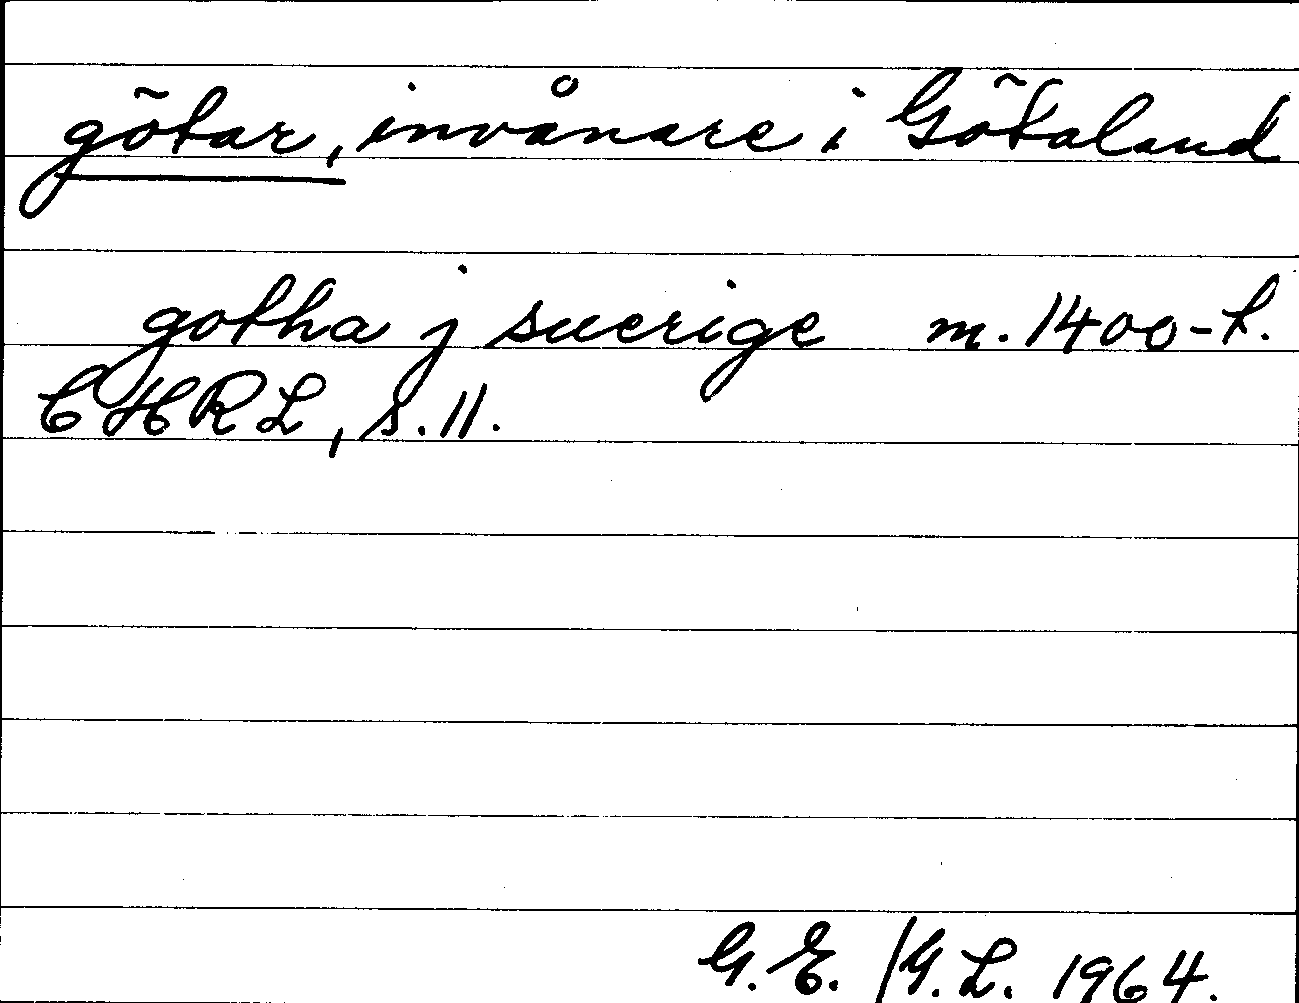 götar, invånare i Götaland
gotha j suerige m. 1400-t.
CHRL, s. 11.
G. E. /G. L. 1964.